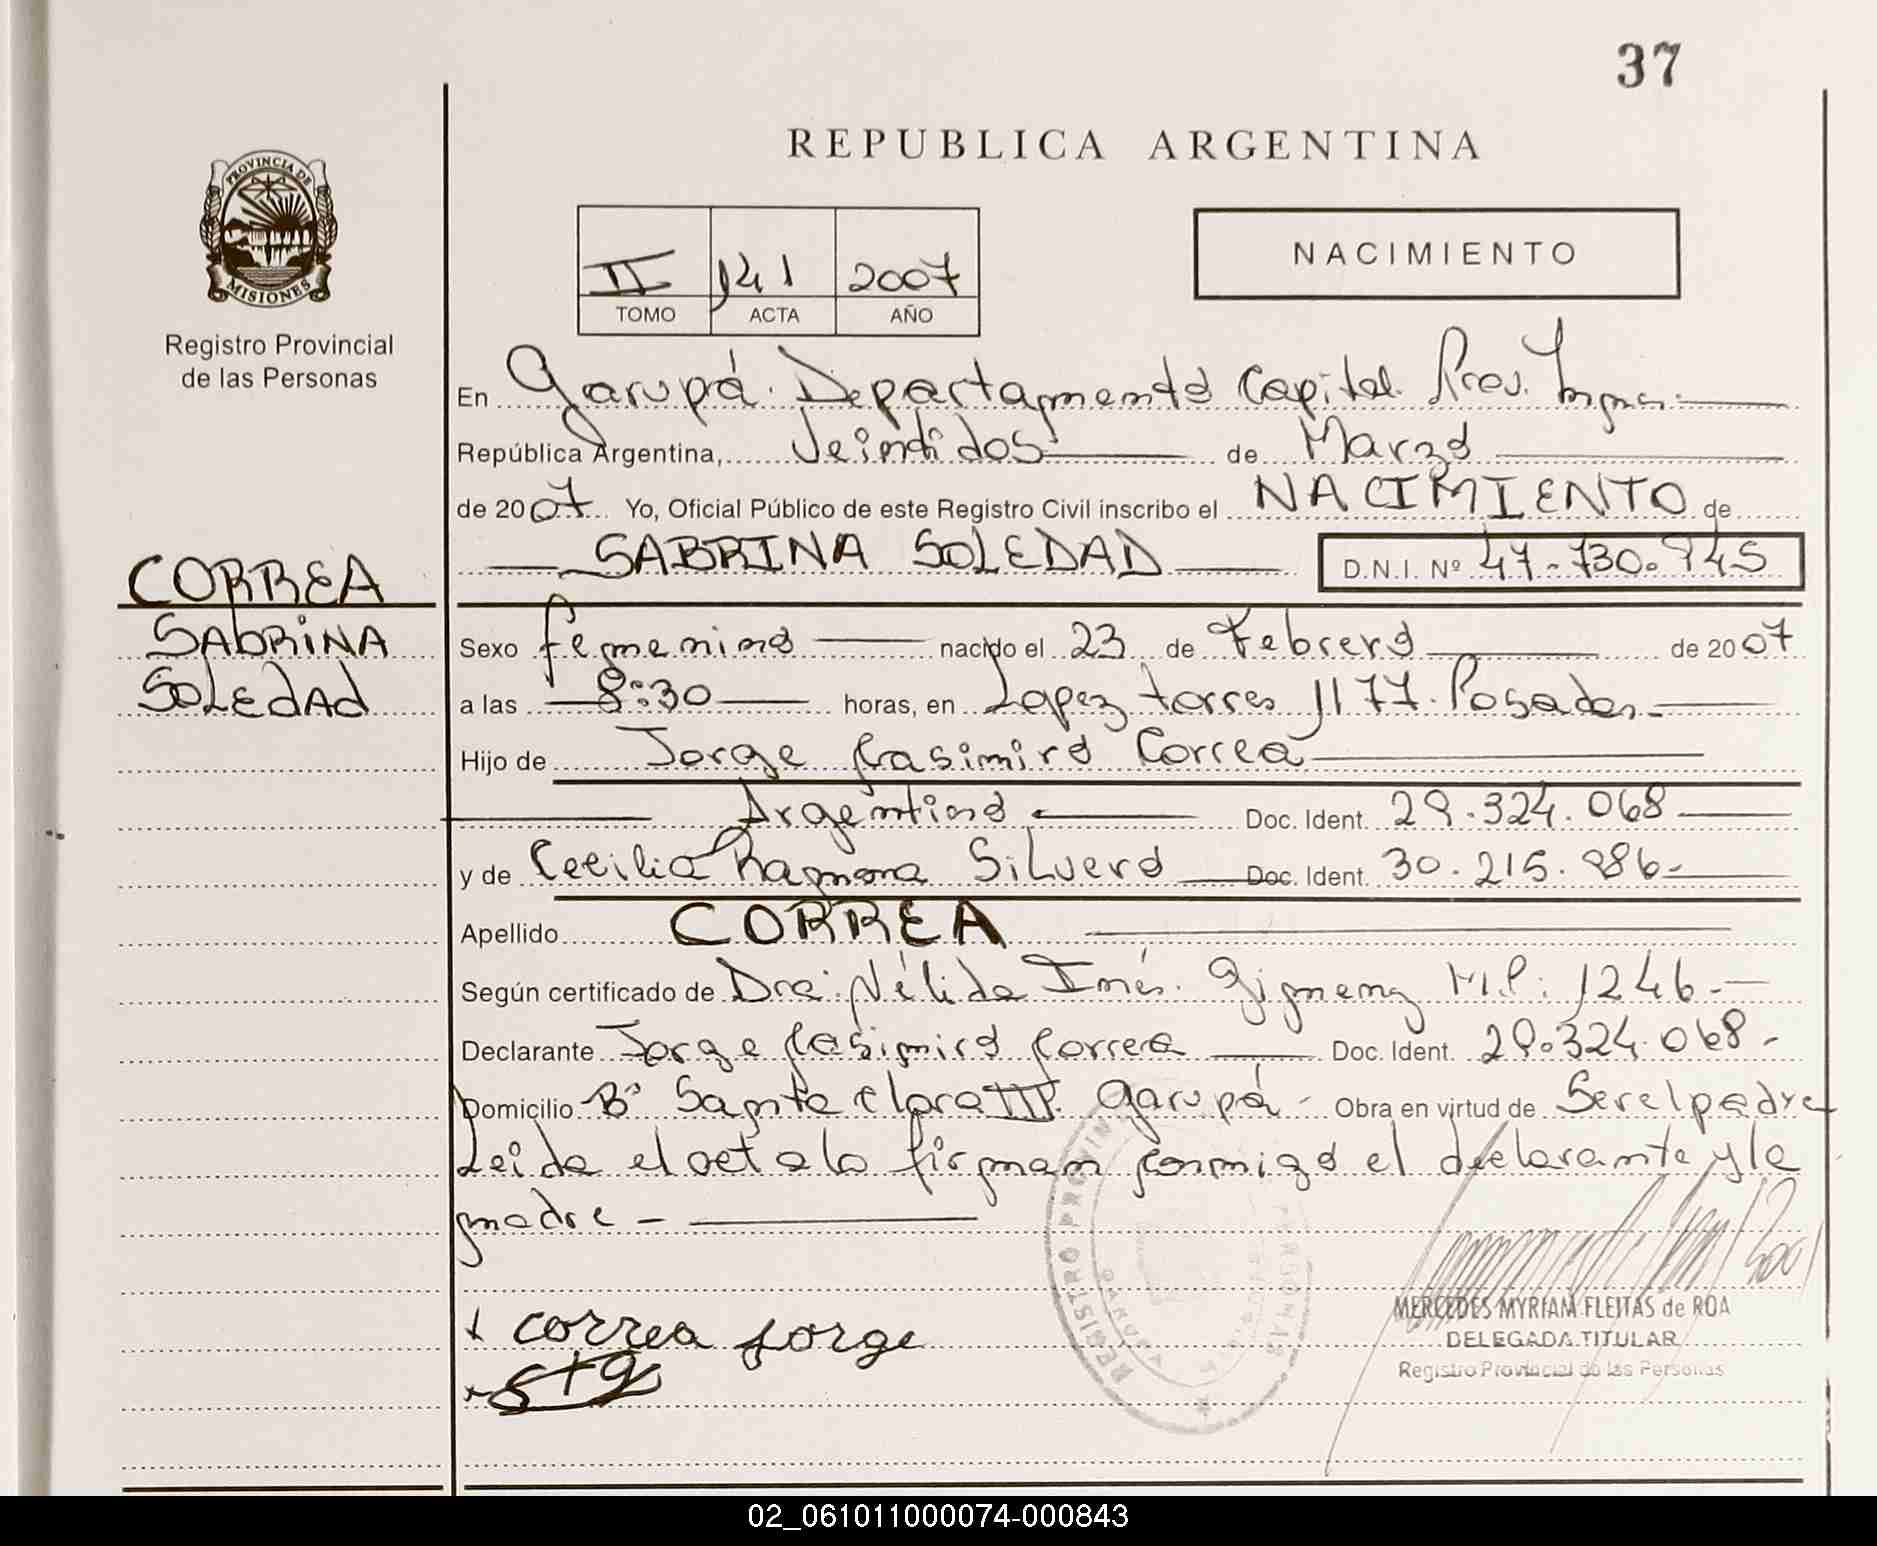 37
REPUBLICA ARGENTINA
PROVINCIA DE
MISIONES
Registro Provincial
de las Personas
II 141 2007
TOMO ACTA AÑO
NACIMIENTO
En Garupá. Departamento Capital. Prov.
República Argentina, Veintidos de Marzo
de 2007 Yo, Oficial Público de este Registro Civil inscribo el NACIMIENTO de
SABRINA SOLEDAD D.N.I. Nº 47.730.945
CORREA
SABRINA
SOLEDAD
Sexo femenino nacido el 23 de Febrero de 2007
a las 8:30 horas, en Lopez torres 1177. Posadas.
Hijo de Jorge Casimiro Correa
Argentino Doc. Ident. 29.324.068
y de Cecilia Ramona Silvero Doc. Ident. 30.215.986-
Apellido CORREA
Según certificado de Dra: Nélida Inés. Gimenez M.P: 1246.-
Declarante Jorge Casimiro Correa Doc. Ident. 29.324.068-
Domicilio Bº Santa Clara III. Garupá- Obra en virtud de Ser el padre
Leida el acta la firman conmigo el declarante y la
madre -
correa Jorge
MERCEDES MYRIAM FLEITAS de ROA
DELEGADA TITULAR
Registro Provincial de las Personas
REGISTRO PROVIN PERSONAS
02_061011000074-000843